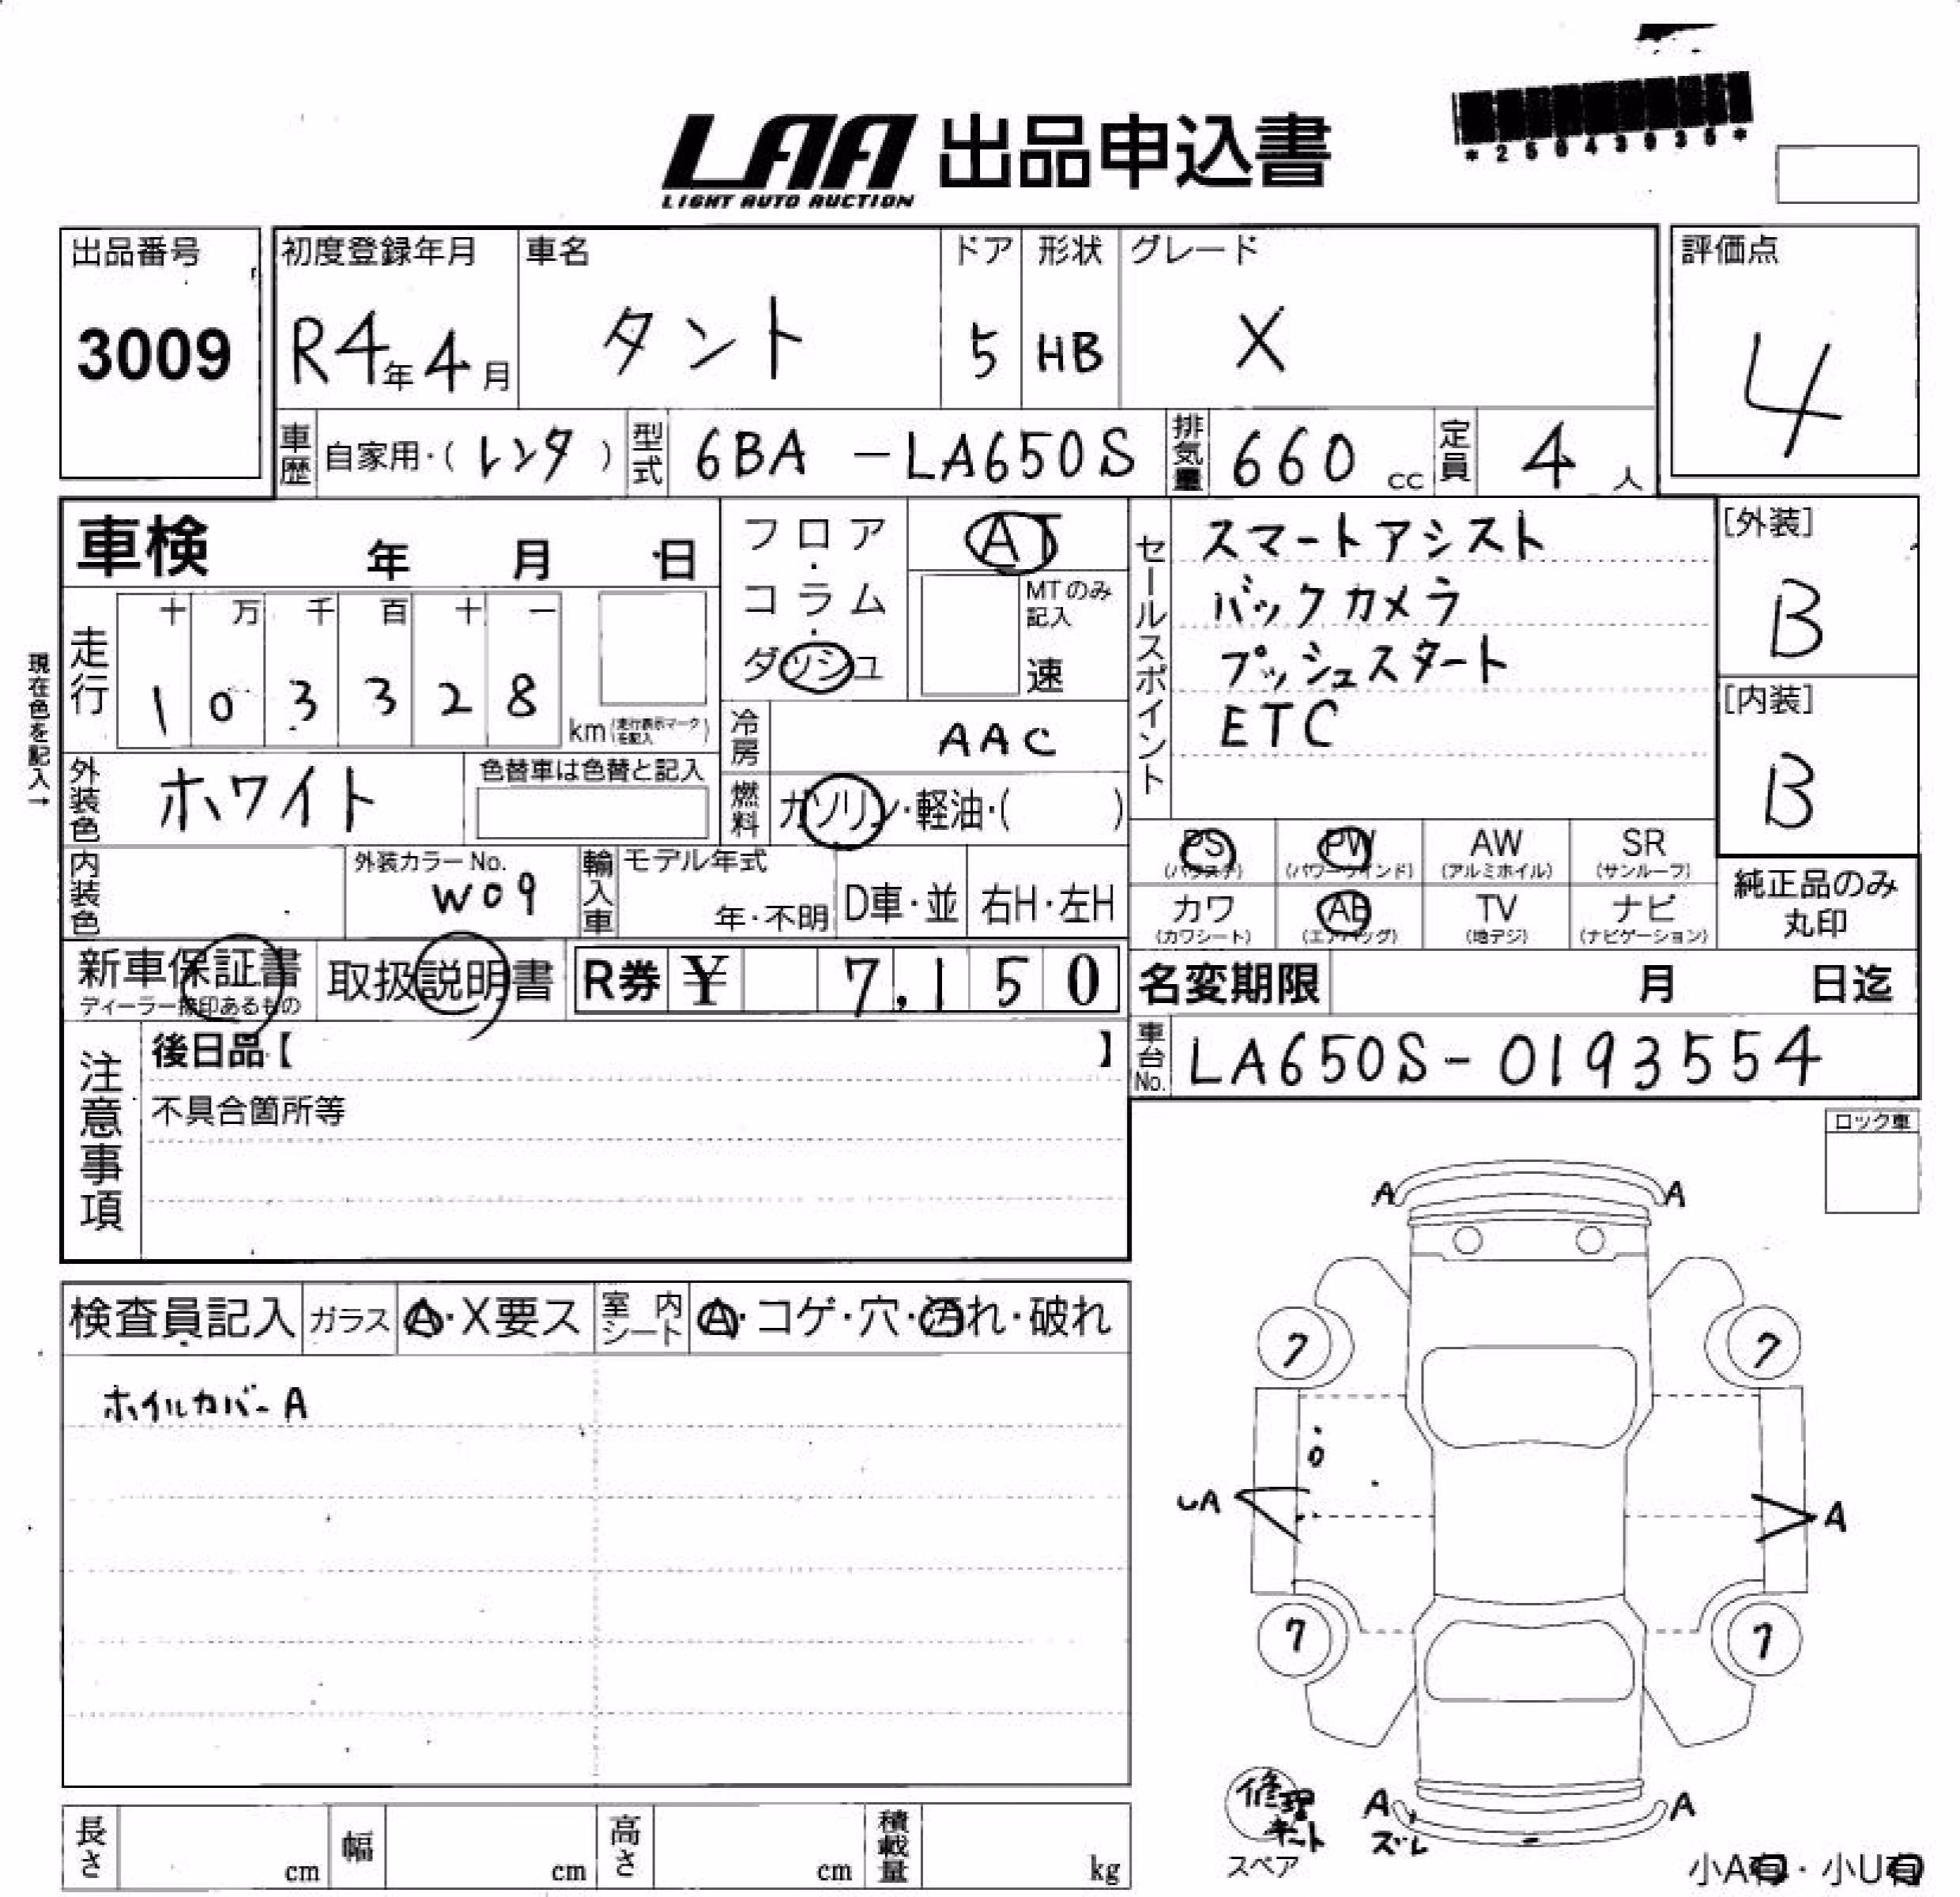 LAA 出品申込書
LIGHT AUTO AUCTION
*25043935*
出品番号
3009
初度登録年月
R4年4月
車名
タント
ドア
5
形状
HB
グレード
X
評価点
4
車歴
自家用・(レンタ)
型式
6BA -LA650S
排気量
660 cc
定員
4 人
車検 年 月 日
フロア・コラム・ダッシュ
AT
MTのみ記入
速
セールスポイント
スマートアシスト
バックカメラ
プッシュスタート
ETC
[外装]
B
[内装]
B
現在色を記入→
走行
十 万 千 百 十 一
1 0 3 3 2 8
km(走行表示マークを記入)
冷房
AAC
外装色
ホワイト
色替車は色替と記入
燃料
ガソリン・軽油・( )
内装色
外装カラーNo.
W09
輸入車
モデル年式
年・不明
D車・並
右H・左H
PS
(パワステ)
PW
(パワーウインド)
AW
(アルミホイル)
SR
(サンルーフ)
カワ
(カワシート)
AB
(エアバッグ)
TV
(地デジ)
ナビ
(ナビゲーション)
純正品のみ
丸印
新車保証書
ディーラー捺印あるもの
取扱説明書
R券 ¥ 7,150
名変期限 月 日迄
注意事項
後日品【 】
不具合箇所等
車台No.
LA650S-0193554
ロック車
検査員記入
ガラス
A・X要ス
室内シート
A・コゲ・穴・汚れ・破れ
ホイルカバーA
A A
7 7
UA A
7 7
修理キット
スペア
A A
ズレ
小A有・小U有
長さ cm
幅 cm
高さ cm
積載量 kg